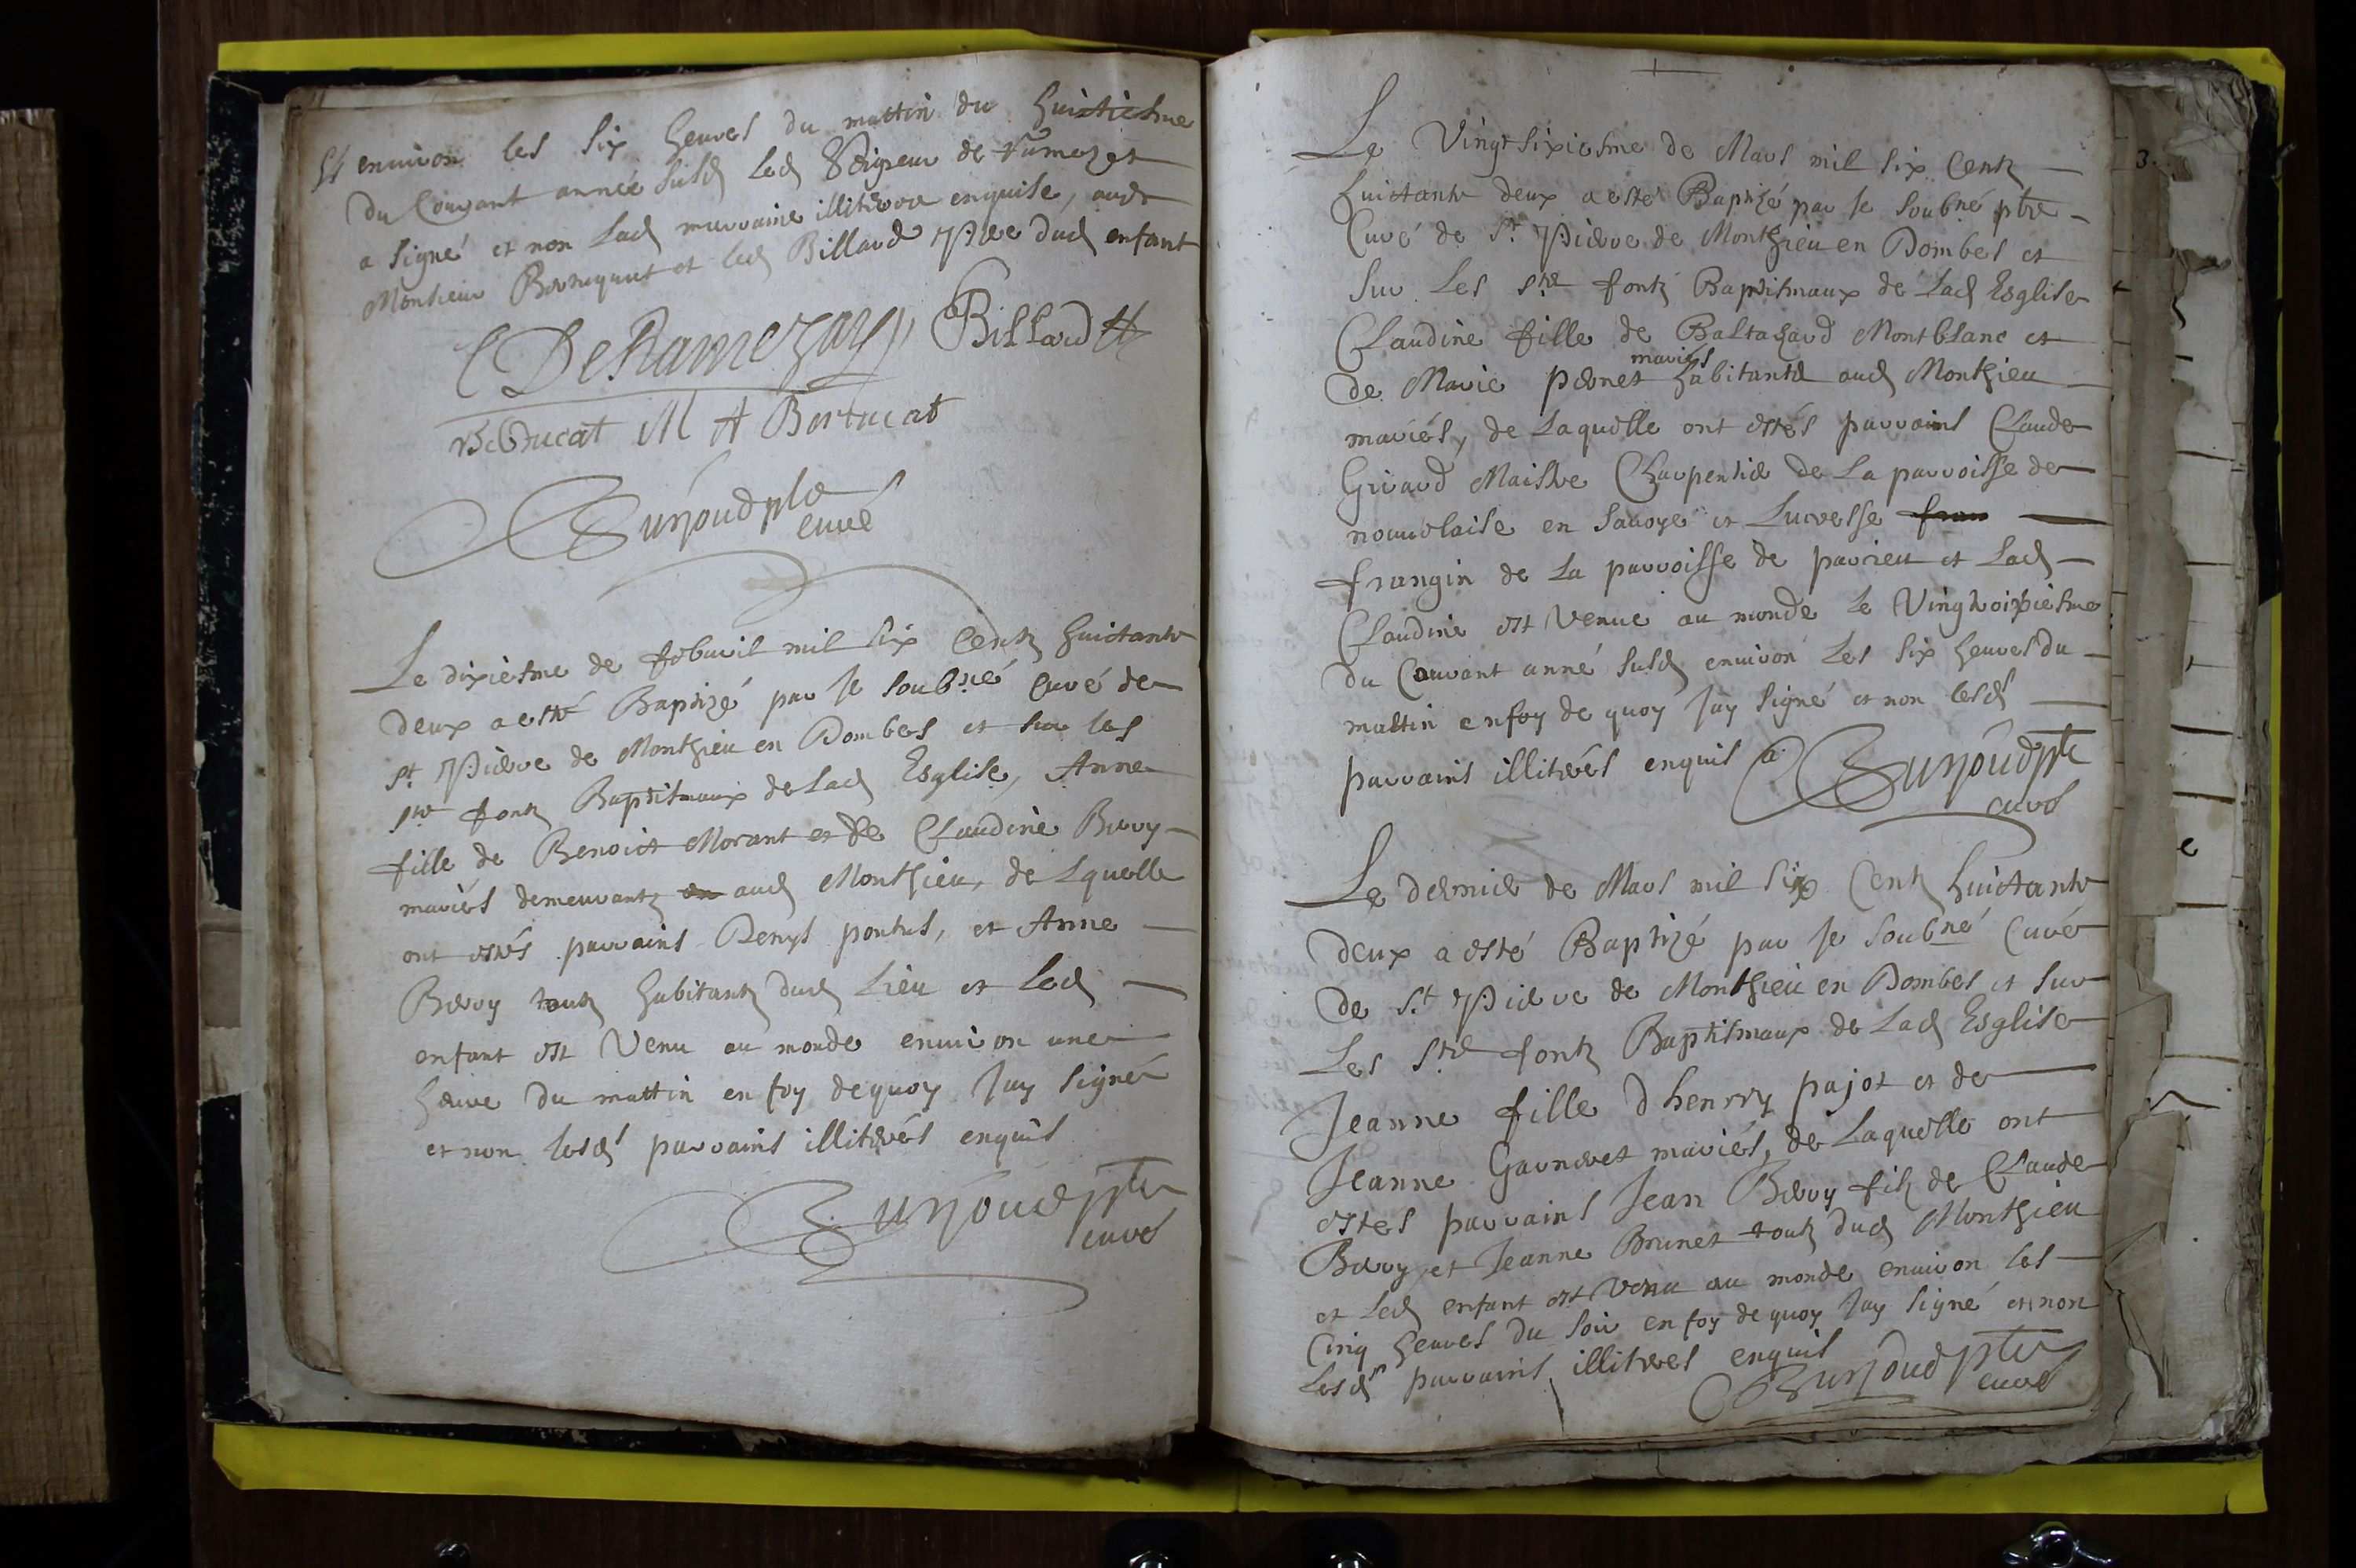 Et environ les six heures du mattin du huictiesme
du Courant année susd led Seigneur de Ramezet
a signé et non lad marraine illitérée enquise, avec
Monsieur Bertucat et led Billard Père dud enfant
DeRamezay Billard
Bertucat M A Bertucat
Buryoud ptre
curé
Le dixiesme de febvril mil six Centz huictante
deux a esté Baptizé par je soubné curé de
St Pierre de Monthieu en Dombes et sur les
stes fontz Baptismaux de lad Esglise, Anne
fille de Benoict Morant et de Claudine Bery
mariés demeurantz aud Monthieu, de Lquelle
ont estés parrains Denys pontus, et Anne
Bery toutz habitantz dud Lieu et Led
enfant est Venu au monde environ une
heure du mattin en foy de quoy Jay signé
et non lesds parrains illiterés enquis
Buryoud ptre
curé
3
Le Vingt sixiesme de Mars mil six Centz
huictante deux a este Baptizé par je soubné ptre
Curé de St Pierre de Monthieu en Dombes et
sur Les stes fontz Baptismaux de Lad Esglise
Claudine fille de Baltazard Montblanc et
mariés
de Marie pernet habitants aud Monthieu
mariés, de Laquelle ont estés parrains Claude
Girard Maistre Charpentier de La parroisse de
nouvelaise en Savoye et Lucresse fran
frangin de La parroisse de parrieu et Lad
Claudine est Venue au monde le Vingtroixiesme
du Courant anné susd environ Les six heures du
mattin en foy de quoy Jay signé et non lesds
parrains illiterés enquis Buryoud ptre
curé
Le dernier de Mars mil six Centz huictante
deux a esté Baptizé par je soubné Curé
de St Pierre de Monthieu en Dombes et sur
Les stes fontz Baptismaux de Lad Esglise
Jeanne fille d henrry pajot et de
Jeanne Garneret mariés, de Laquelle ont
estes parrains Jean Bery filz de Claude
Bery et Jeanne Brunet toutz dud Monthieu
et Led enfant est Venu au monde environ les
Cinq heures du soir en foy de quoy Jay signé et non
Lesds parrains illiteres enquis
Buryoud ptre
curé